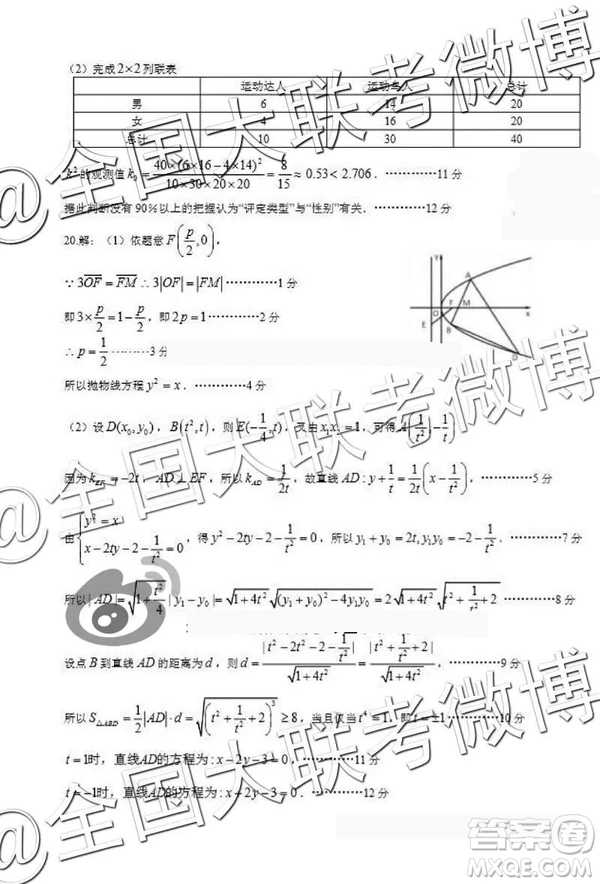 （2）完成2×2列联表
运动达人 运动鸟人 总计
男 6 14 20
女 4 16 20
总计 10 30 40
k²的观测值k₀=40×(6×16-4×14)²/(10×30×20×20)=8/15≈0.53<2.706．…………11分
据此判断没有90%以上的把握认为“评定类型”与“性别”有关．…………12分
20.解：（1）依题意F(p/2,0)，
∵3OF=FM∴3|OF|=|FM|…………1分
即3×p/2=1-p/2，即2p=1…………2分
∴p=1/2………3分
所以抛物线方程y²=x．…………4分
Y A O F M x E B D
（2）设D(x₀,y₀)，B(t²,t)，则E(-1/4,t)，又由x₁x₂=1，可得A(1/t²,-1/t)
因为k_EF=-2t，AD⊥EF，所以k_AD=1/2t，故直线AD:y+1/t=1/2t(x-1/t²)，…………5分
由{y²=x
x-2ty-2-1/t²=0，得y²-2ty-2-1/t²=0，所以y₁+y₀=2t,y₁y₀=-2-1/t²．…………7分
所以|AD|=√(1+t²/4)|y₁-y₀|=√(1+4t²)√((y₁+y₀)²-4y₁y₀)=2√(1+4t²)√(t²+1/t²+2)…………8分
设点B到直线AD的距离为d，则d=|t²-2t²-2-1/t²|/√(1+4t²)=|t²+1/t²+2|/√(1+4t²)，…………9分
所以S△ABD=1/2|AD|·d=√((t²+1/t²+2)³)≥8，当且仅当t⁴=1，即t=±1…………10分
t=1时，直线AD的方程为:x-2y-3=0．…………11分
t=-1时，直线AD的方程为:x+2y-3=0．…………12分
@全国大联考微博
@全国大联考微博
@全国大联考微博
答案圈
MXQE.COM